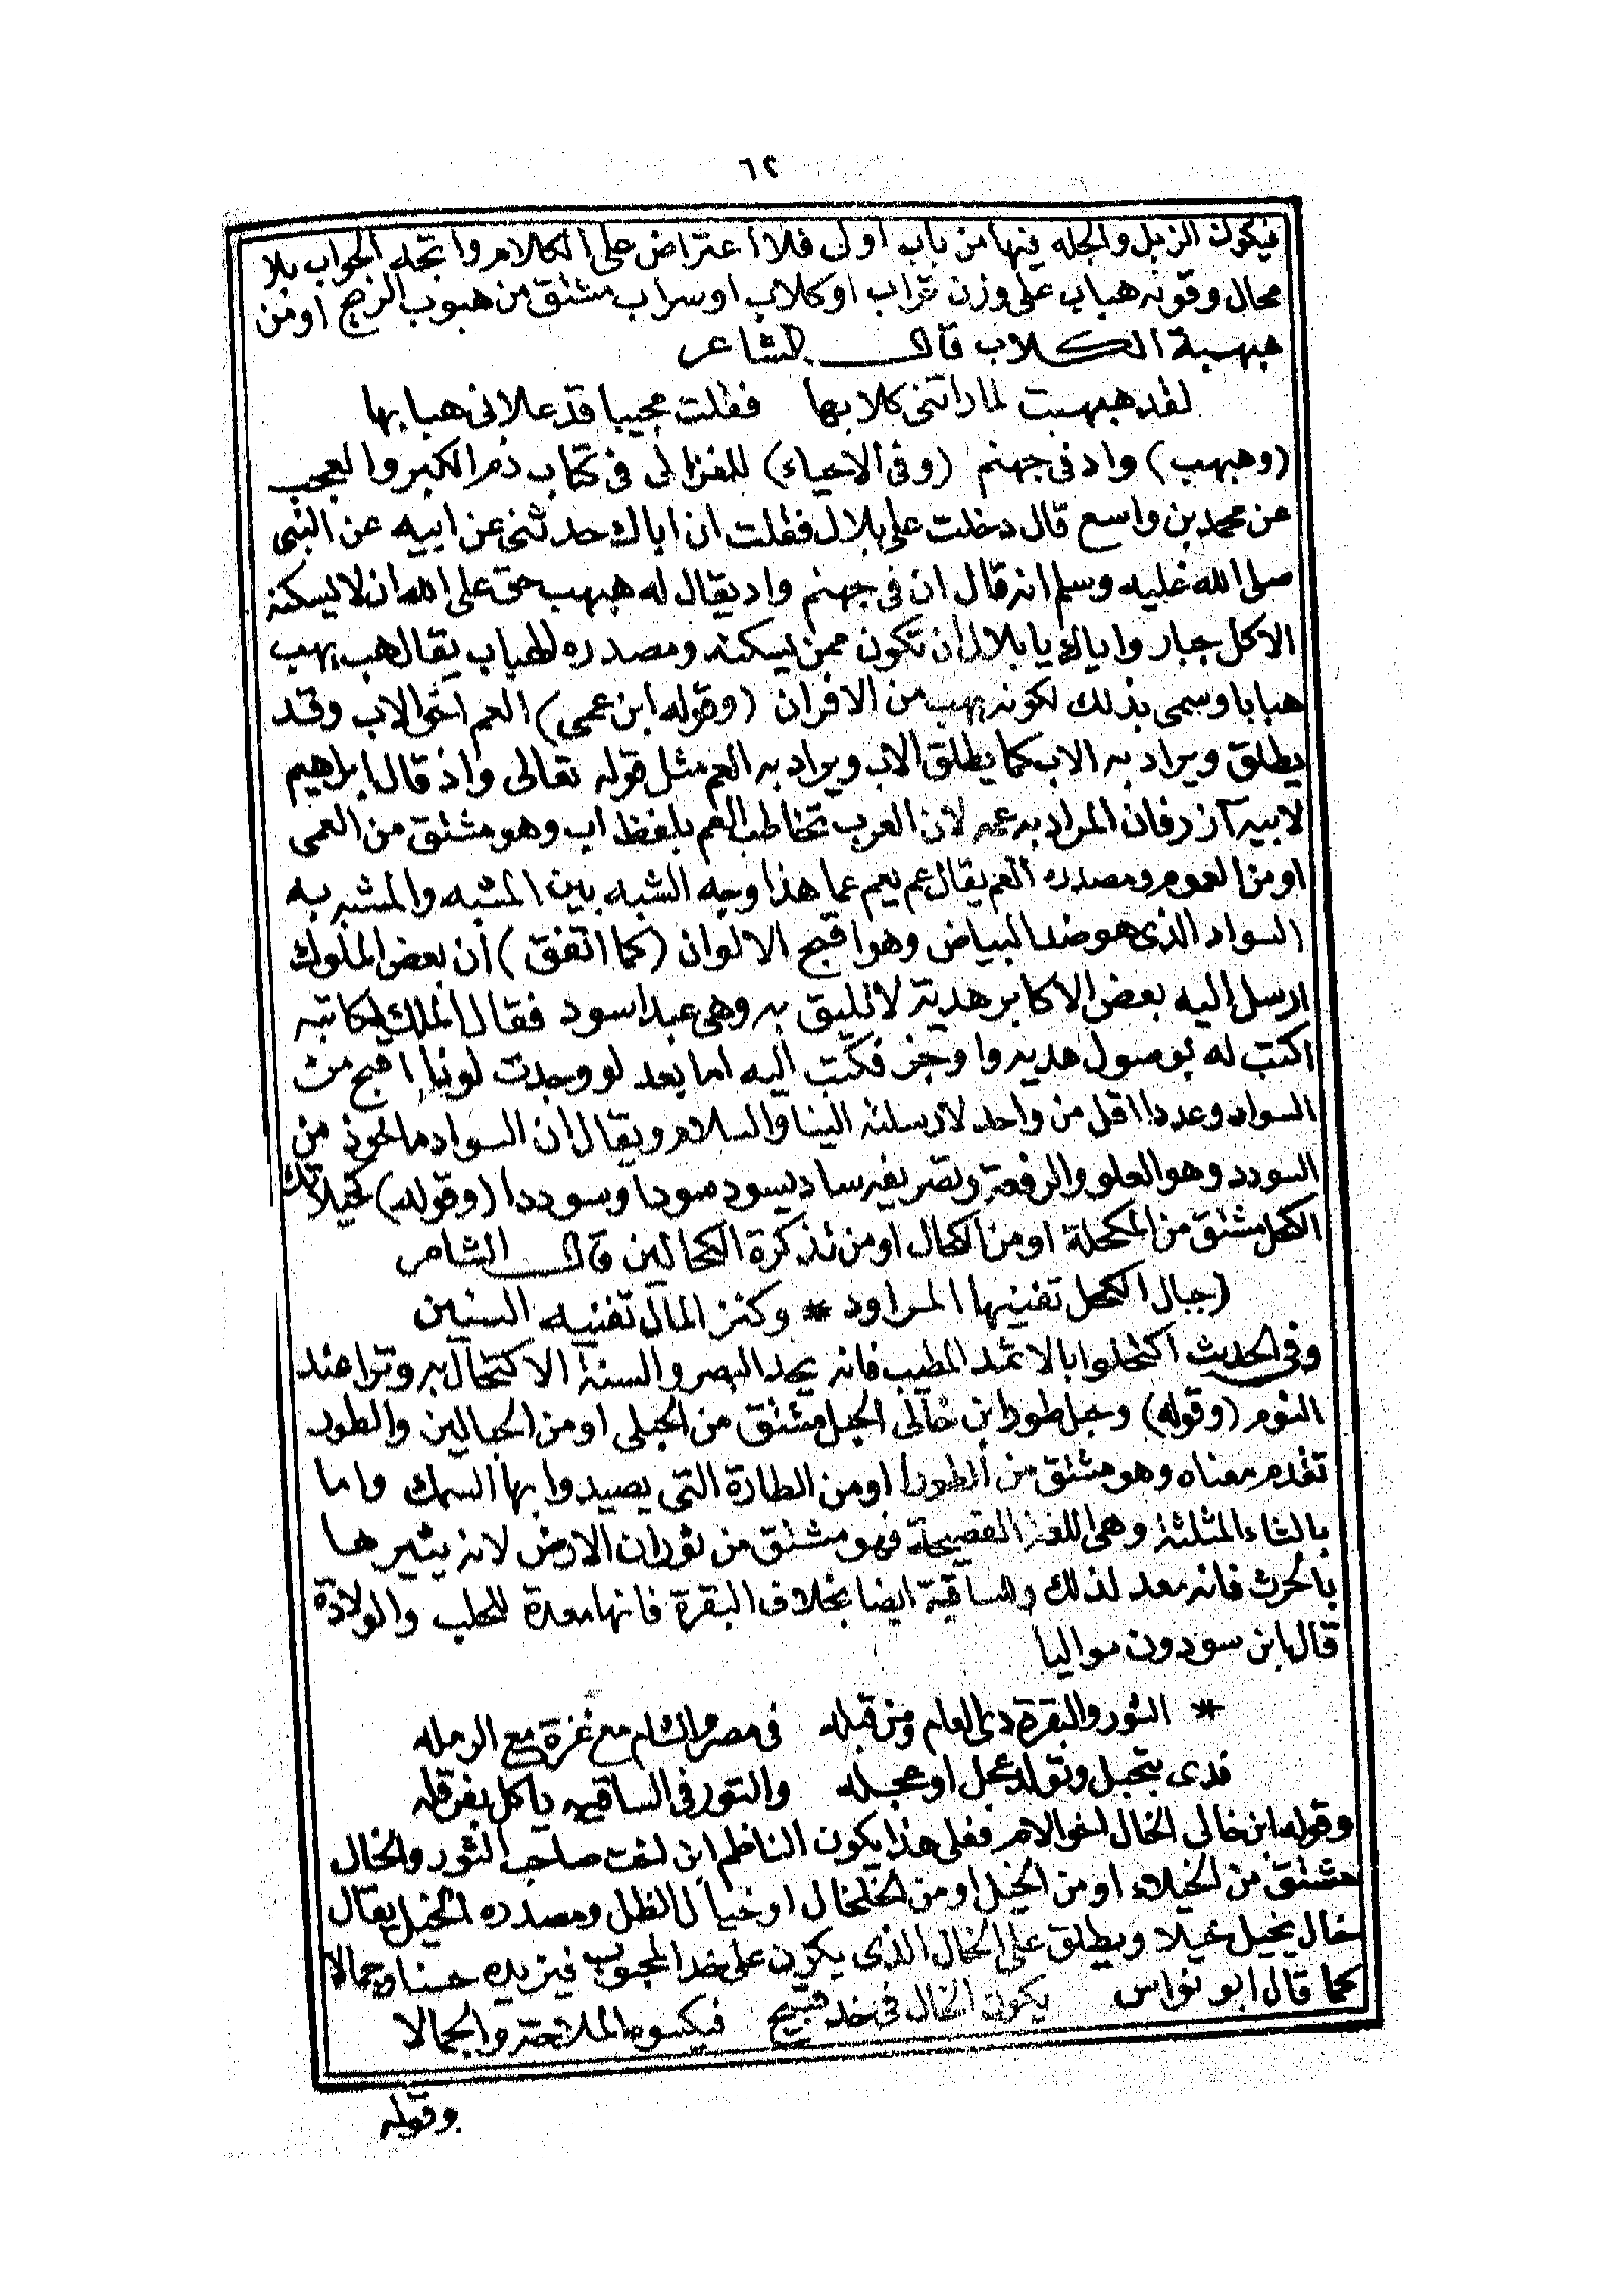 ٦٢
فيكون الزبل والجله فيها من باب اولى فلا اعتراض على الكلام واتجه الجواب بلا
محال وقوله هباب على وزن تراب او كلاب او سراب مشتق من هبوب الريح او من
هبهبة الكلاب قال الشاعر
لقد هبهبت لما راتنى كلابها فقلت مجيبا قد علانى هبابها
(وهبهب) واد فى جهنم (وفى الاحياء) للغزالى فى كتاب ذم الكبر والعجب
عن محمد بن واسع قال دخلت على بلال فقلت ان اباك حدثنى عن ابيه عن النبى
صلى الله عليه وسلم انه قال ان فى جهنم واد يقال له هبهب حق على الله ان لا يسكنه
الا كل جبار واياك يا بلال ان تكون ممن يسكنه ومصدره الهباب يقال هب يهب
هبابا وسمى بذلك لكونه يهب من الافران (وقوله ابن عمى) العم اخو الاب وقد
يطلق ويراد به الاب كما يطلق الاب ويراد به العم مثل قوله تعالى واذ قال ابراهيم
لابيه آزر فان المراد به عمه لان العرب تخاطب العم بلفظ اب وهو مشتق من العمى
او من العموم ومصدره العم يقال عم يعم عما هذا وجه الشبه بين المشبه والمشبه به
السواد الذى هو ضد البياض وهو اقبح الالوان (كما اتفق) ان بعض الملوك
ارسل اليه بعض الاكابر هدية لا تليق به وهى عبد اسود فقال الملك لكاتبه
اكتب له بوصول هديه واوجز فكتب اليه اما بعد لو وجدت لونا اقبح من
السواد وعددا اقل من واحد لارسلته الينا والسلام ويقال ان السواد ماخوذ من
السودد وهو العلو والرفعة وتصريفه ساد يسود سودا وسوددا (وقوله) كحيلاتك
الكحل مشتق من المكحلة او من الكحال او من تذكرة الكحالين قال الشاعر
(جبال الكحل تفنيها المراود * وكنز المال تفنيه السنين
وفى الحديث اكتحلوا بالاثمد المطيب فانه يحد البصر والسنة الاكتحال به وترا عند
النوم (وقوله) وجبل طور ابن خالى الجبل مشتق من الجبلى او من الجبالين والطور
تقدم معناه وهو مشتق من الطور او من الطارة التى يصيدوا بها السمك واما
بالثاء المثلثة وهى اللغة الفصيحة فهو مشتق من ثوران الارض لانه يثيرها
بالحرث فانه معد لذلك والساقية ايضا بخلاف البقرة فانها معدة للحلب والولادة
قال ابن سودون مواليا
* الثور والبقرة دى العام ومن قبله فى مصر والشام مع غزة مع الرمله
فدى بتحبل وتولد عجل او عجله والتور فى الساقيه ياكل بفرقله
وقوله ابن خالى الخال اخو الام فعلى هذا يكون الناظم ابن اخت صاحب الثور والخال
مشتق من الخيلاء او من الخيل او من الخلخال او خيال الظل ومصدره الخيل يقال
خال يخيل خيلا ويطلق على الخال الذى يكون على خد المحبوب فيزيده حسنا وجمالا
كما قال ابو نواس يكون الخال فى خد قبيح فيكسوه الملاحة والجمالا
وقوله